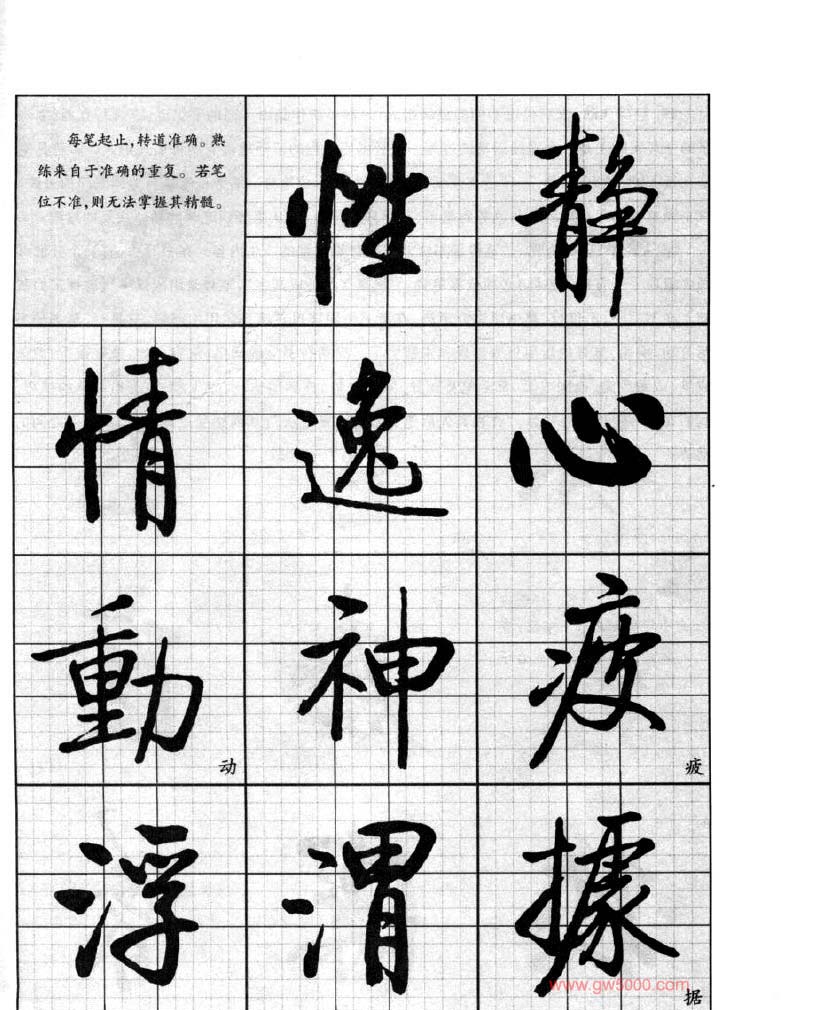 每笔起止,转道准确。熟
练来自于准确的重复。若笔
位不准,则无法掌握其精髓。
性 静
情 逸 心
動 神 疲
动 疲
浮 渭 據
据
www.gw5000.com